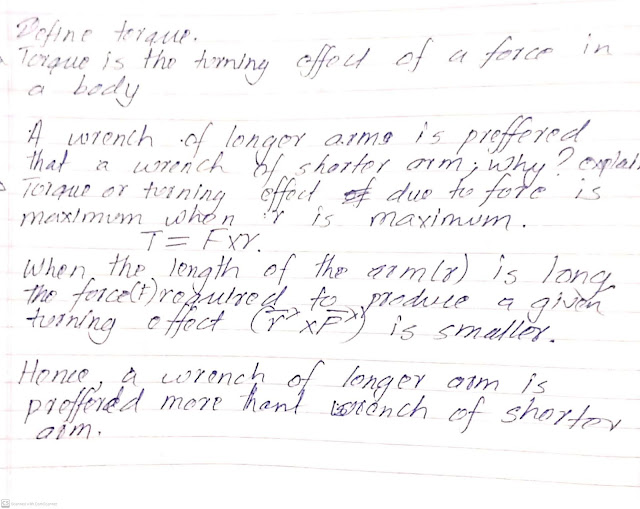 Define torque.
Torque is the turning effect of a force in
a body
A wrench of longer arms is preffered
that a wrench of shorter arm; why? explain
Torque or turning effect of due to fore is
maximum when r is maximum.
T = F×r.
When the length of the arm(r) is long
the force(f) required to produce a given
turning effect (r→ × F→) is smaller.
Hence, a wrench of longer arm is
preffered more than wrench of shorter
arm.